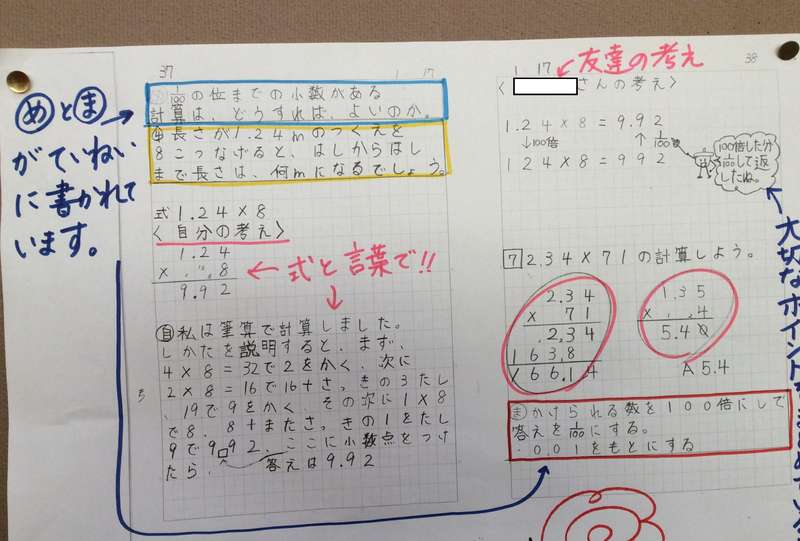 37
1 17
め 1/100の位までの小数がある
計算は、どうすれば、よいのか。
問 長さが1.24mのつくえを
8こつなげると、はしからはし
まで長さは、何mになるでしょう。
式1.24×8
〈自分の考え〉
1.24
× 8
9.92
自 私は筆算で計算しました。
しかたを説明すると、まず、
4×8=32で2をかく、次に
2×8=16で16+さっきの3たし
、19で9をかく、その次に1×8
で8、8+またさっきの1をたし
9で9□92、ここに小数点をつけ
たら、 答えは9.92
5
めとま
がていねい
に書かれて
います。
式と言葉で!!
1 17
38
友達の考え
〈 さんの考え〉
1.24×8=9.92
↓100倍 ↑1/100
124×8=992
100倍した分
1/100して返
したね。
7 2.34×71の計算しよう。
2.34
× 71
2,34
163,8
166.14
1.35
× 4
5.40
A 5.4
ま かけられる数を100倍にして
答えを1/100にする。
・0.01をもとにする
大切なポイントを